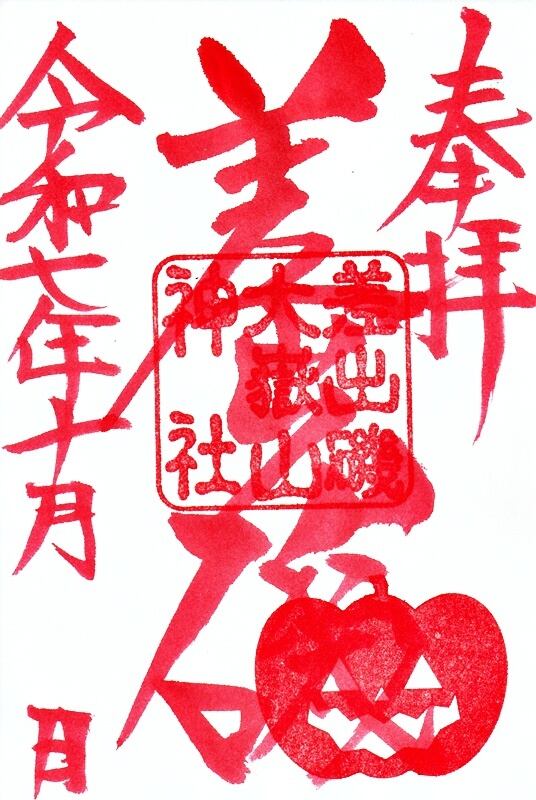 奉拝
差出磯
差出磯
大嶽山
神社
令和七年十月 日